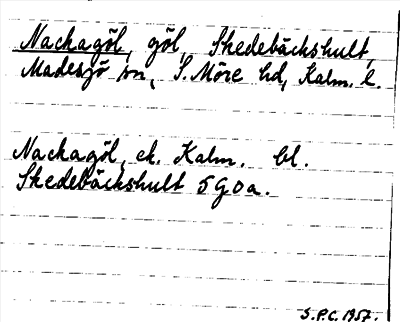 Nackagöl, göl, Skedebäckshult,
Madesjö sn, S. Möre hd, Kalm. l.
Nackagöl, ek. Kalm. bl.
Skedebäckshult 5 G o a.
S.P.C. 1957.